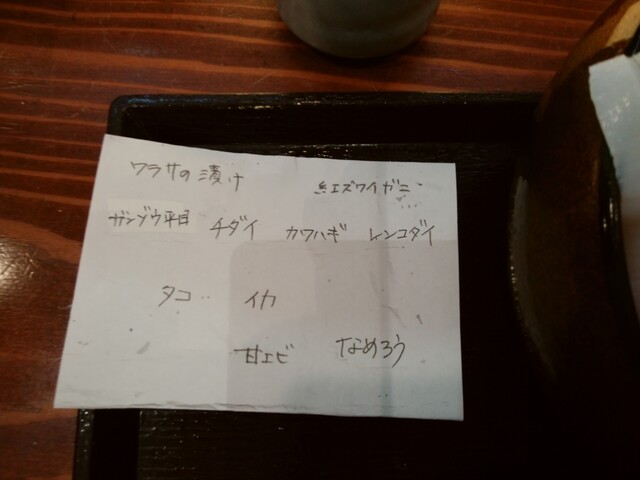 ワラサの漬け 紅ズワイガニ
ガンゾウ平目 チダイ カワハギ レンコダイ
タコ イカ
甘エビ なめろう